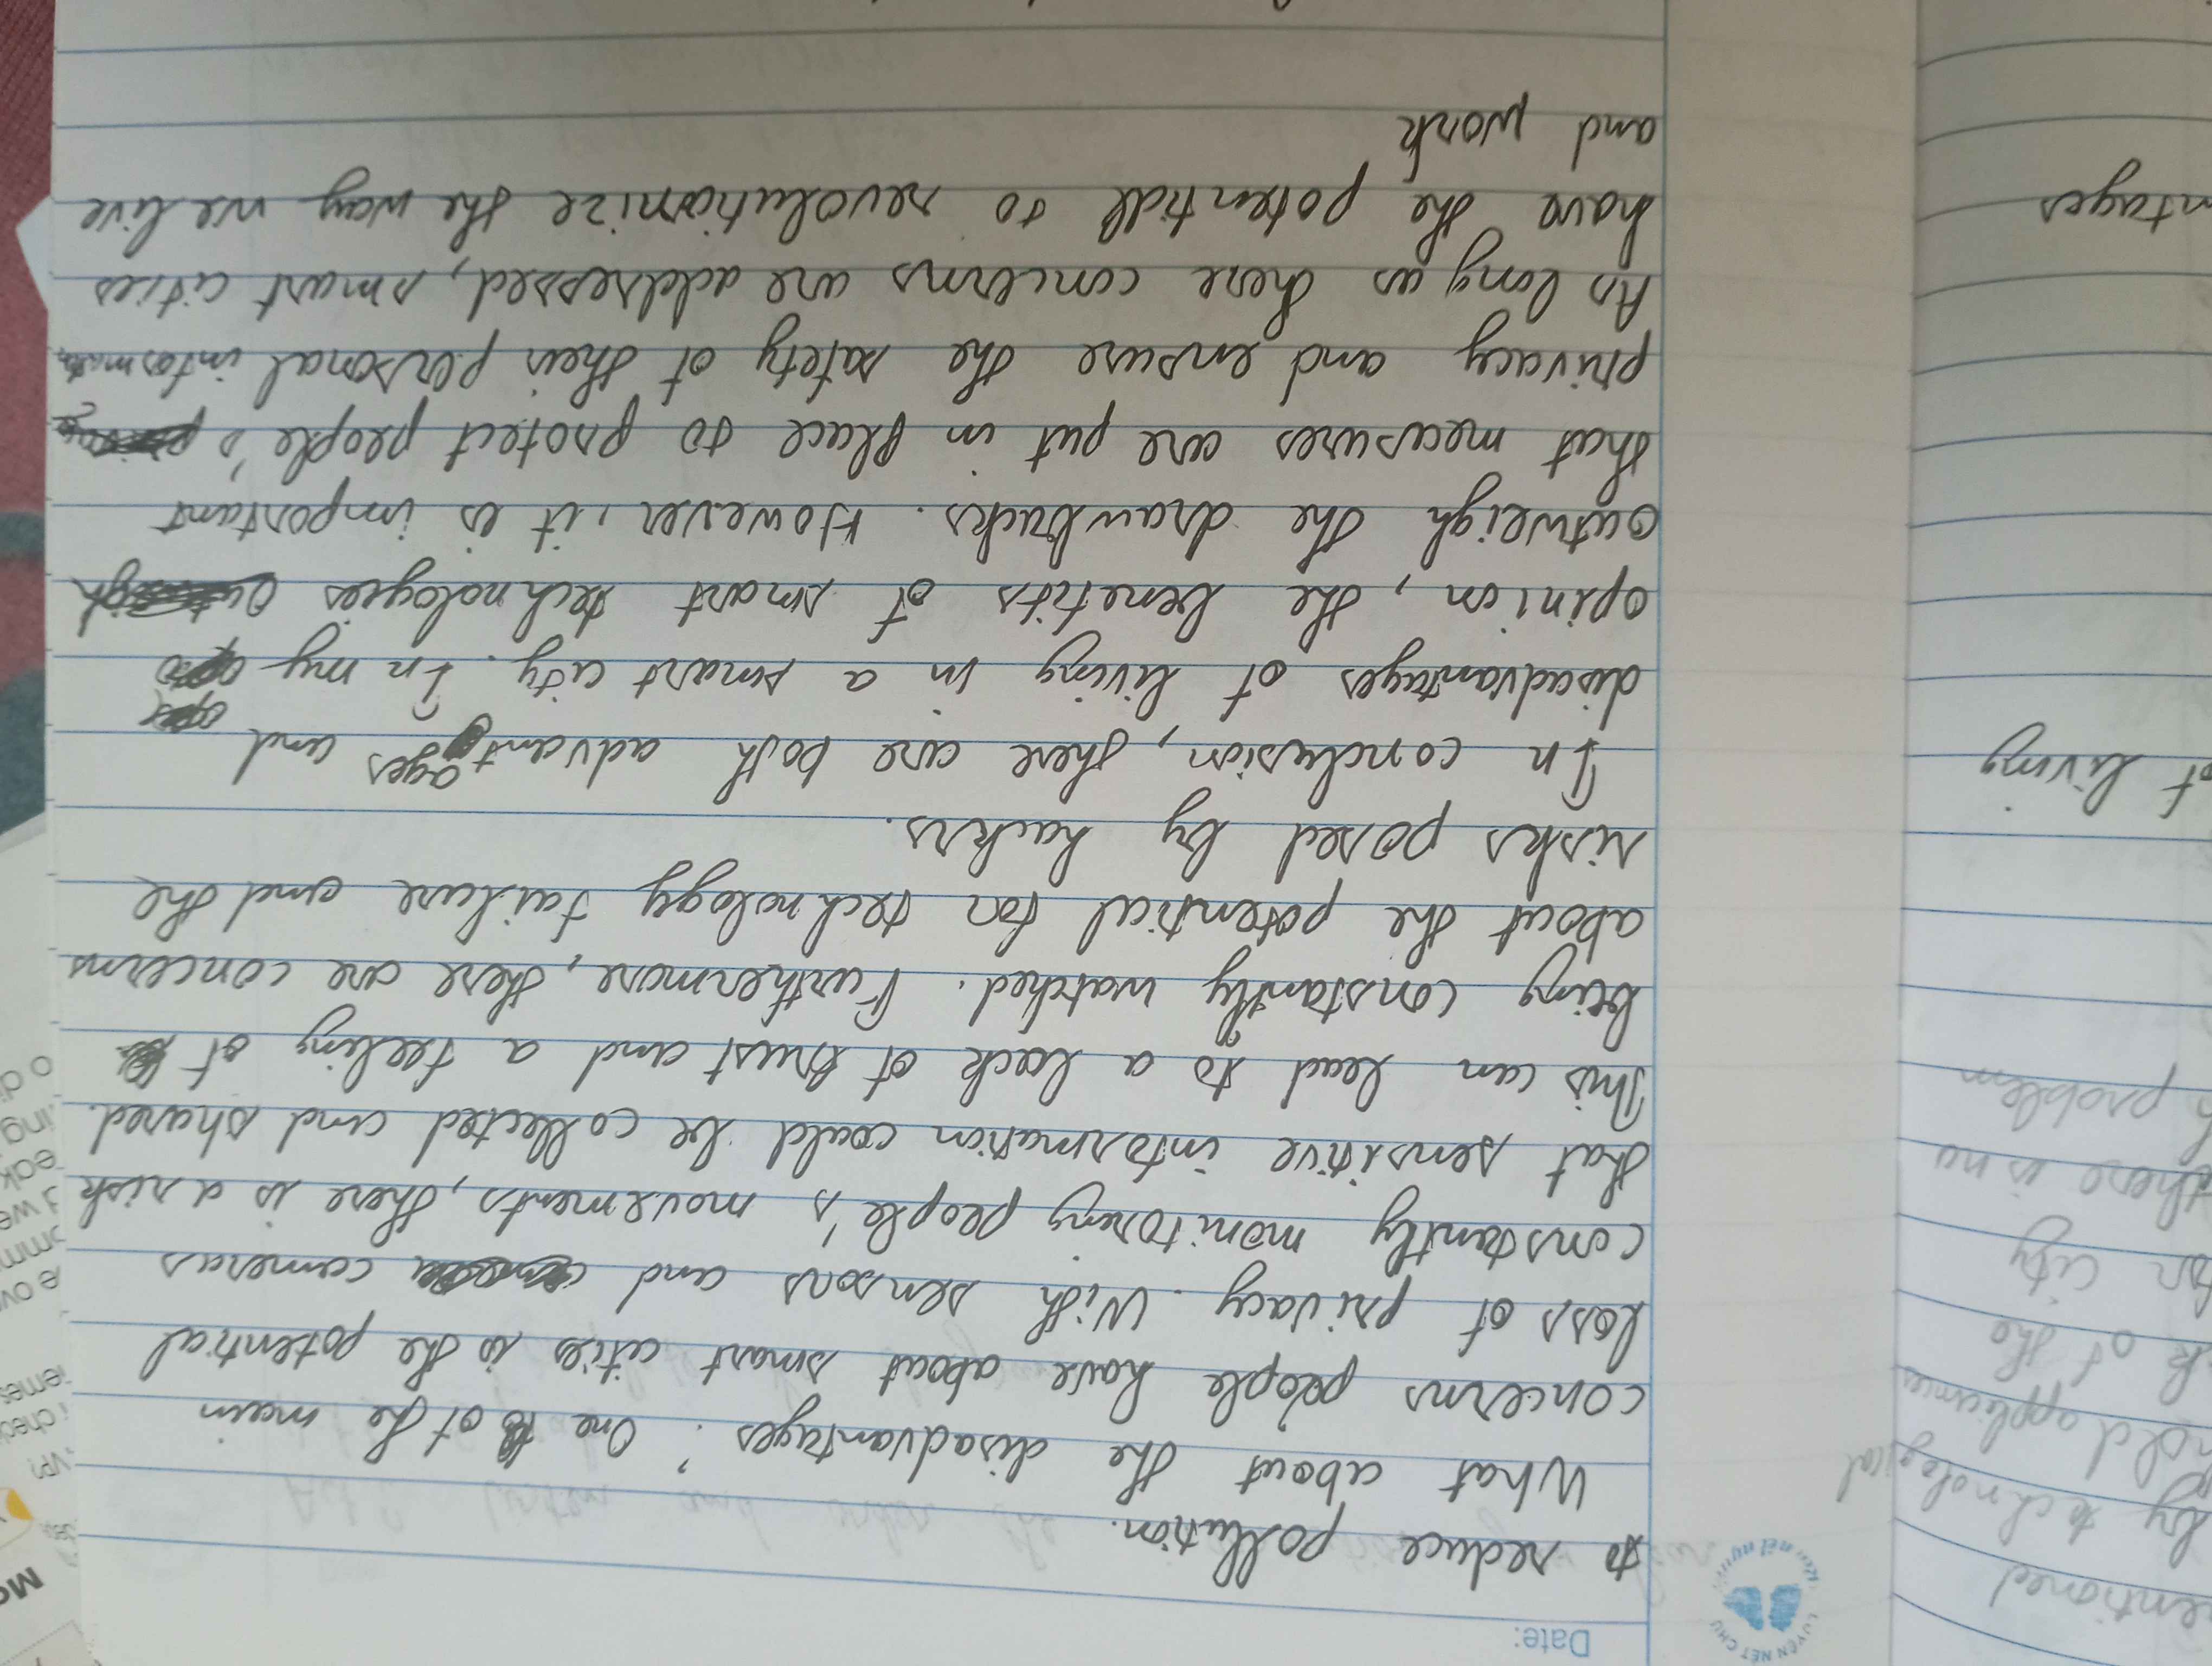 Date:
LUYỆN NÉT CHỮ
to reduce pollution.
What about the disadvantages? One of the main
concerns people have about smart cities is the potential
loss of privacy. With sensors and cameras
constantly monitoring people's movements, there is a risk
that sensitive information could be collected and shared.
This can lead to a lack of trust and a feeling of
being constantly watched. Furthermore, there are concerns
about the potential for technology failure and the
risks posed by hackrs.
In conclusion, there are both advantages and
disadvantages of living in a smart city. In my
opinion, the benefits of smart technologies
outweigh the drawbacks. However, it is important
that measures are put in place to protect people's
privacy and ensure the safety of their personal information
As long as these concerns are addressed, smart cities
have the potential to revolutionize the way we live
and work
entioned
by technological
old appliances
of the
for city
there is no
problem
of living
ntages